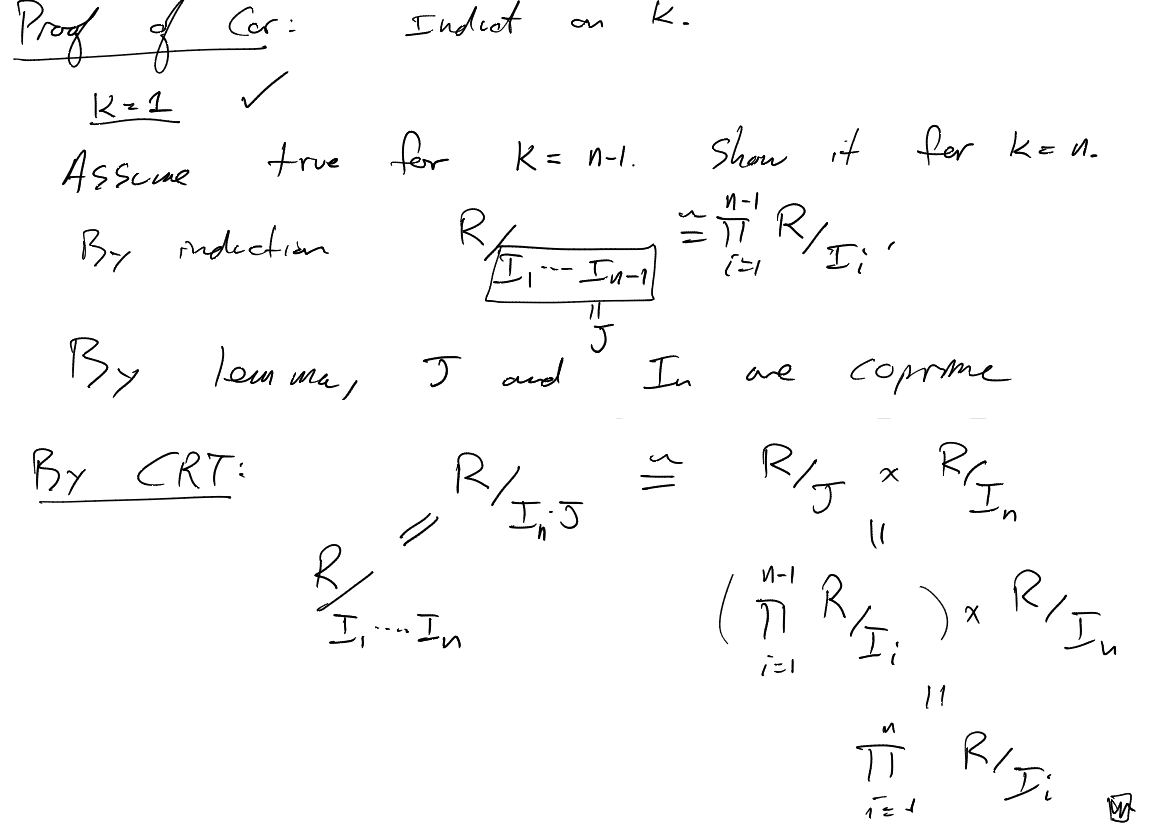 Proof of Cor: Induct on K.
K=1 ✓
Assume true for K = n-1. Show it for K = n.
By induction R/I₁ ⋯ Iₙ₋₁ ≅ ∏ᵢ₌₁ⁿ⁻¹ R/Iᵢ.
|| J
By lemma, J and Iₙ are coprime
By CRT: R/Iₙ·J ≅ R/J × R/Iₙ
= ||
R/I₁ ⋯ Iₙ (∏ᵢ₌₁ⁿ⁻¹ R/Iᵢ) × R/Iₙ
||
∏ᵢ₌₁ⁿ R/Iᵢ